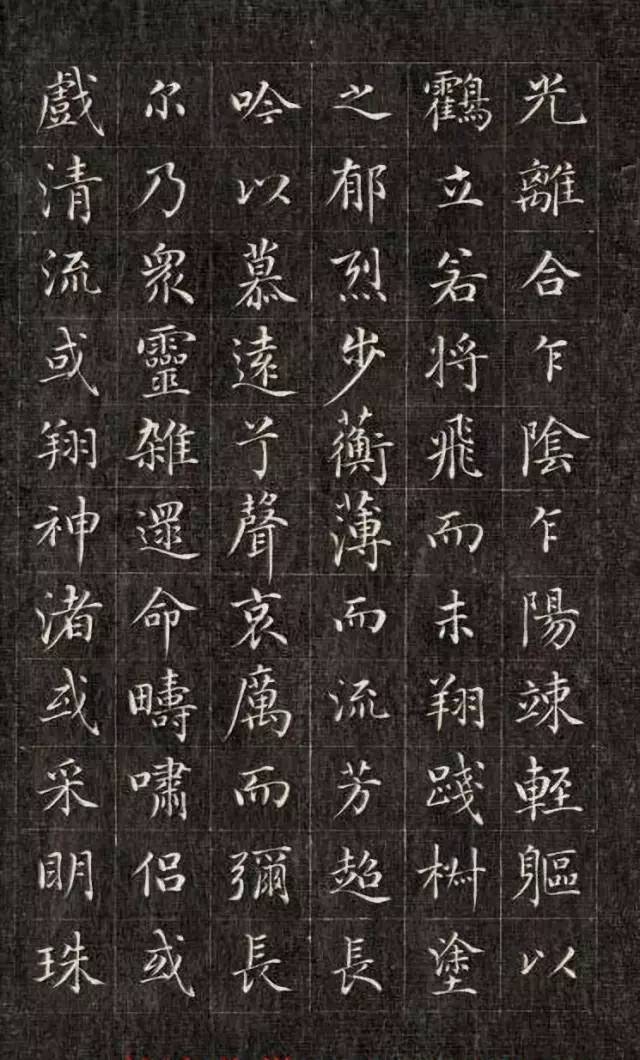 光離合乍陰乍陽竦輕軀以
鸖立若將飛而未翔踐椒塗
之郁烈步蘅薄而流芳超長
吟以慕遠兮聲哀厲而彌長
尔乃衆靈雜遝命疇嘯侣或
戲清流或翔神渚或采明珠